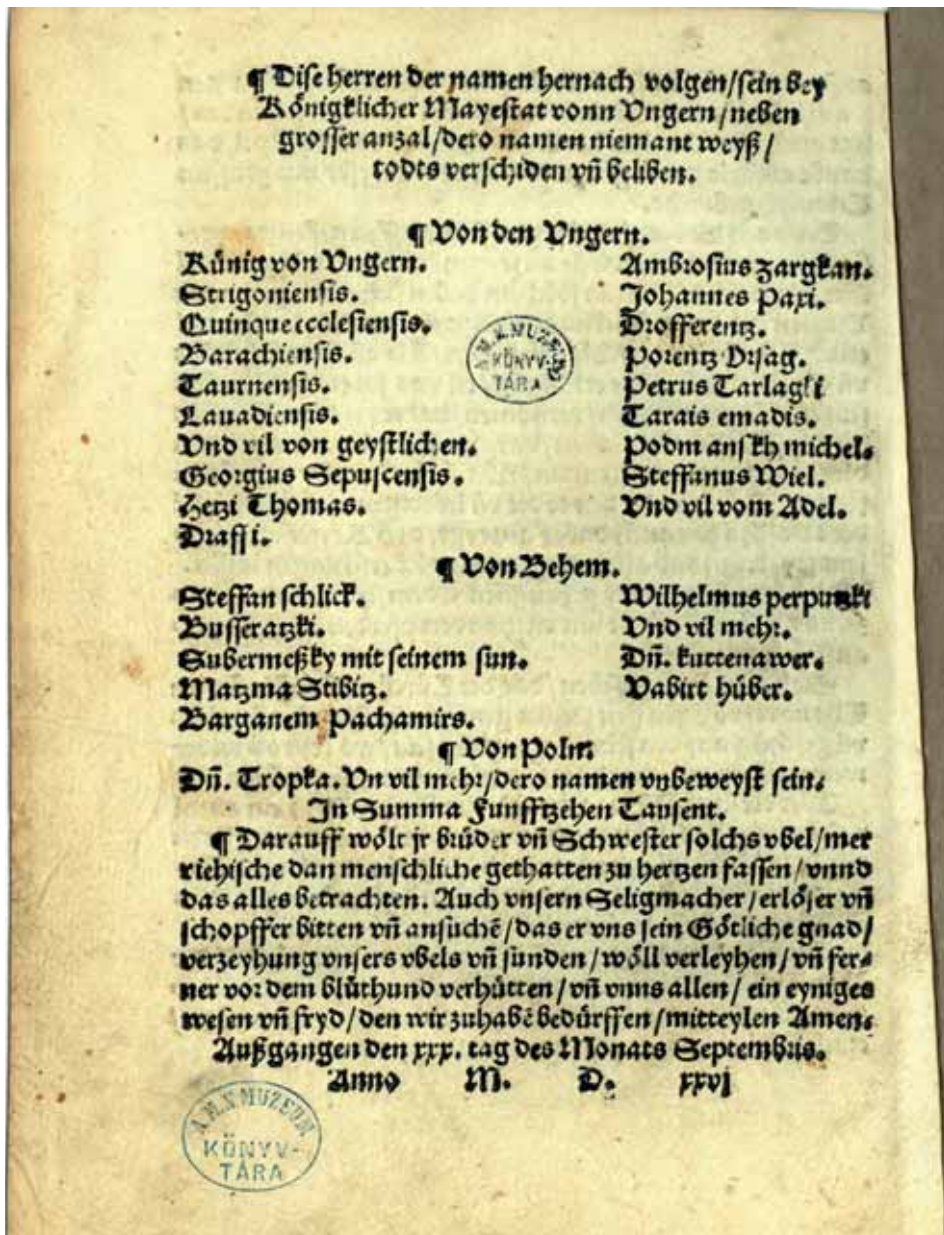 ¶ Dise herren der namen hernach volgen/sein bey
Königklicher Mayestat vonn Vngern/neben
grosser anzal/dero namen niemant weyß/
todts verschiden vn̄ beliben.
¶ Von den Vngern.
Künig von Vngern.
Strigoniensis.
Quinqueecclesiensis.
Barachiensis.
Taurnensis.
Lauadiensis.
Vnd vil von geystlichen.
Georgius Sepuscensis.
Zetzi Thomas.
Draffi.
Ambrosius zargkan.
Johannes Paxi.
Drofferentz.
Porentz Orsag.
Petrus Tarlagki
Tarais emadis.
Podmanskh michel.
Steffanus Wiel.
Vnd vil vom Adel.
A.M.N MUZEUM
KÖNYV-
TÁRA
¶ Von Behem.
Steffan schlick.
Busseratzki.
Subermeßky mit seinem sun.
Matzma Stibitz.
Barganem Pachamirs.
Wilhelmus perputzki
Vnd vil mehr.
Dn̄. kuttenawer.
Vabirt hüber.
¶ Von Poln
Dn̄. Tropka. Vn vil mehr/dero namen vnbeweyst sein.
In Summa Funfftzehen Tausent.
¶ Darauff wölt jr brüder vn̄ Schwester solchs vbel/mer
viehische dan menschliche gethatten zu hertzen fassen/vnnd
das alles betrachten. Auch vnsern Seligmacher/erlöser vn̄
schopffer bitten vn̄ ansuchē/das er vns sein Götliche gnad/
verzeyhung vnsers vbels vn̄ sunden/wöll verleyhen/vn̄ fer-
ner vor dem blüthund verhütten/vn̄ vnns allen/ein eyniges
wesen vn̄ fryd/den wir zuhabē bedürffen/mitteylen Amen.
Außgangen den xxx. tag des Monats Septembris.
Anno M. D. xxvj
A.M.N MUZEUM
KÖNYV-
TÁRA